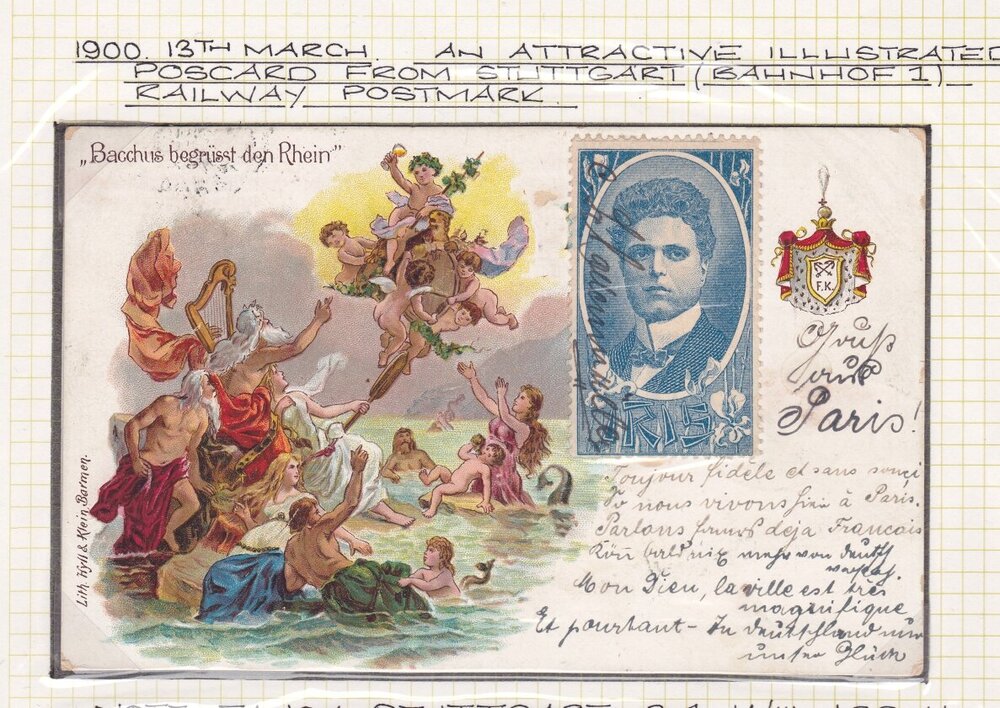 1900. 13TH MARCH. AN ATTRACTIVE ILLLUSTRATED
POSCARD FROM STUTTGART (BAHNHOF 1)
RAILWAY POSTMARK.
„Bacchus begrüsst den Rhein”
F.K.
Gruß
aus
Paris!
RIS
Toujour fidèle et sans souci
So nous vivons hier à Paris.
Parlons deja Francais
mehr von deutsch
Mon Dieu, la ville est très
magnifique
Et pourtant – In Deutschland nur
unser Glück
Lith. Hyll & Klein, Barmen.